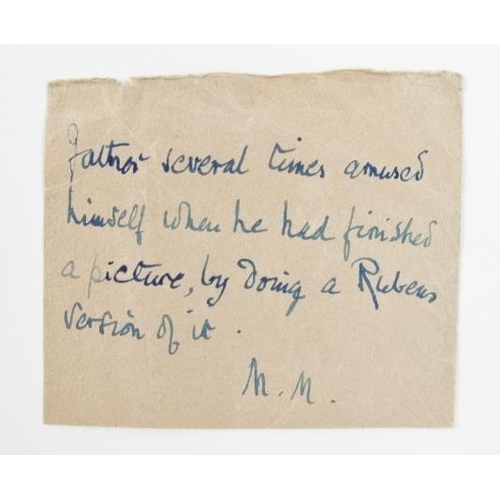 Father several times amused
himself when he had finished
a picture, by Doing a Rubens
version of it.
M. M.